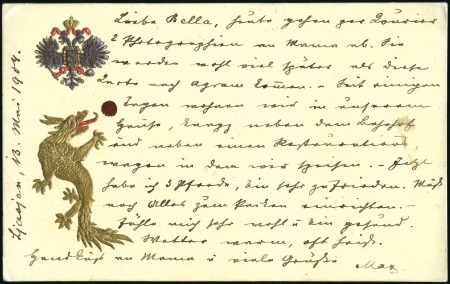 Liaojan, 13. Mai 1904.
Liebe Bella, heute gehen per Courier
2 Photographien an Mama ab. Sie
werden wohl viel später als diese
Karte nach Agram kommen. – Seit einigen
Tagen wohnen wir in unserem
Hause, knapp neben dem Bahnhof
und neben einem Restaurations-
wagen in dem wir speisen. – Jetzt
habe ich 3 Pferde, bin sehr zufrieden. Muß
noch Alles zum Reiten einrichten. –
Fühle mich sehr wohl u bin gesund.
Wetter warm, oft heiß.
Handkuß an Mama u viele Grüße Max